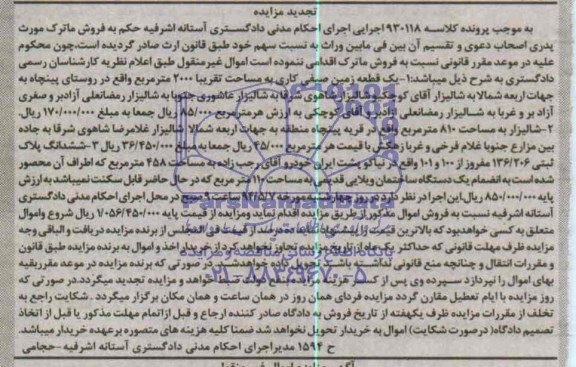 تجدید مزایده
به موجب پرونده کلاسه ۹۳۰۱۱۸ اجرایی اجرای احکام مدنی دادگستری آستانه اشرفیه حکم به فروش ماترک مورث
پدری اصحاب دعوی و تقسیم آن بین فی مابین وراث به نسبت سهم خود طبق قانون ارث صادر گردیده است.چون محکوم
علیه در موعد مقرر قانونی نسبت به فروش ماترک اقدامی ننموده است اموال غیرمنقول طبق اعلام نظریه کارشناس رسمی
دادگستری به شرح ذیل میباشد:۱-یک قطعه زمین صیفی کاری به مساحت تقریبا ۲۰۰۰ مترمربع واقع در روستای پینچاه به
جهات اربعه شمالا به شالیزار آقای کوچکی شالیزار شاهوی شرقا به شالیزار عاشوری جنوبا به شالیزار رمضانعلی آزادبر و صغری
آزاد بر و غربا به شالیزار رمضانعلی آزادبر و آقای کوچکی به ارزش هر مترمربع ۸۵/۰۰۰ ریال جمعا به مبلغ ۱۷۰/۰۰۰/۰۰۰ ریال.
۲-شالیزار به مساحت ۸۱۰ مترمربع واقع در قریه پینچاه منطقه به جهات اربعه شمالا شالیزار غلامرضا شاهوی شرقا به جاده
بین مزارع جنوبا غلام فرخی و غربا زهکش با قیمت هر مترمربع ۴۵/۰۰۰ ریال جمعا به مبلغ ۳۶/۴۵۰/۰۰۰ ریال ۳-ششدانگ پلاک
ثبتی ۱۳۶/۲۰۶ مفروز از ۱۰۰ و ۱۰۱ واقع در لیاکو پشت ایران خودرو آقای رجب زاده به مساحت ۴۵۸ مترمربع که اطراف آن محصور
شده است به انضمام یک دستگاه ساختمان ویلایی قدیمی به مساحت ۱۱۰ متر مربع که در حال حاضر قابل سکنت نمیباشد به ارزش
پایه ۸۵۰/۰۰۰/۰۰۰ ریال.این اجرا در نظر دارد در روز چهارشنبه مورخه ۹۴/۵/۷ ساعت ۹ صبح در محل اجرای احکام مدنی دادگستری
آستانه اشرفیه نسبت به فروش اموال مذکور از طریق مزایده اقدام نماید و مزایده از قیمت پایه ۱/۰۵۶/۴۵۰/۰۰۰ ریال شروع و اموال
متعلق به کسی خواهد بود که بالاترین قیمت را پیشنهاد نماید ده درصد از قیمت فی المجلس از برنده مزایده دریافت و الباقی وجه
مزایده ظرف مهلت قانونی که حداکثر یک ماه از تاریخ مزایده تجاوز نخواهد کرد از خریدار اخذ و اموال به برنده مزایده طبق قانون
و مقررات انتقال و چنانچه منع قانونی نداشته باشد تحویل داده خواهد شد.در صورتی که برنده مزایده در موعد مقرر بقیه
بهای اموال را نپردازد سپرده وی پس از کسر هزینه مزایده به نفع دولت ضبط خواهد و مزایده تجدید میگردد.در صورتی که
روز مزایده با ایام تعطیل مقارن گردد مزایده فردای همان روز در همان ساعت و همان مکان برگزار میگردد. شکایت راجع به
تخلف از مقررات مزایده ظرف یکهفته از تاریخ فروش به دادگاه صادر کننده ارجاع و قبل از اتمام مهلت مذکور یا قبل از اتخاذ
تصمیم دادگاه(در صورت شکایت) اموال به خریدار تحویل نخواهد شد ضمنا کلیه هزینه های متصوره برعهده خریدار میباشد.
ح ۱۵۹۴ مدیر اجرای احکام مدنی دادگستری آستانه اشرفیه-حجامی
ParsNamadData
پایگاه اطلاع رسانی مناقصه و مزایده
۰۲۱-۸۸۳۴۹۶۷۰-۵